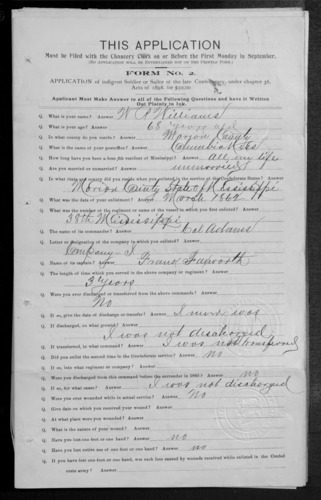 THIS APPLICATION
Must be Filed with the Chancery Clerk on or Before the First Monday in September.
(NO APPLICATION WILL BE ENTERTAINED NOT ON THE PROPER FORM.)
FORM No. 2.
APPLICATION of indigent Soldier or Sailor of the late Confederacy, under chapter
Acts of 1898,
Applicant Must Make Answer to all of the Following Questions and have it Written
Out Plainly in Ink.
Q. What is your name? Answer W Williams
Q. What is your age? Answer 68 years old
Q. In what county do you reside? Answer Marion County
Q. What is the name of your postoffice? Answer Columbia Miss
Q. How long have you been a resident of Mississippi? Answer All my life
Q. Are you married or unmarried? Answer unmarried
Q. In what State and county did you reside when you enlisted in the service of the Confederate States? Answer
Marion County State of Mississippi
Q. What was the date of your enlistment? Answer March 1862
Q. What was the number of the regiment or name of the vessel in which you first enlisted? Answer
38th Mississippi
Q. The name of its commander? Answer Col Adams
Q. Letter or designating of the company in which you enlisted? Answer
Company
Q. Name of its captain? Answer Frank
Q. The length of time which you served in the above company or regiment? Answer
3 Years
Q. Were you ever discharged or transferred from the above commands? Answer
No
Q. If so, give the date of discharge or transfer? Answer I never was
Q. If discharged, on what ground? Answer
I was not discharged
Q. If transferred, to what command? Answer I was not transferred
Q. Did you enlist the second time in the Confederate service? Answer No
Q. If so, into what regiment or company? Answer
Q. Were you discharged from this command before the surrender in 1865? Answer no
Q. If so, for what cause? Answer I was not discharged
Q. Were you ever wounded while in actual service? Answer No
Q. Give date on which you received your wound? Answer
Q. At what place were you wounded? Answer
Q. What is the nature of your wound? Answer
Q. Have you lost one foot or one hand? Answer no
Q. Have you lost entire use of one foot or one hand? Answer no
Q. If you have lost one foot or one hand, was such loss caused by wounds received while enlisted in the Confed
erate army? Answer